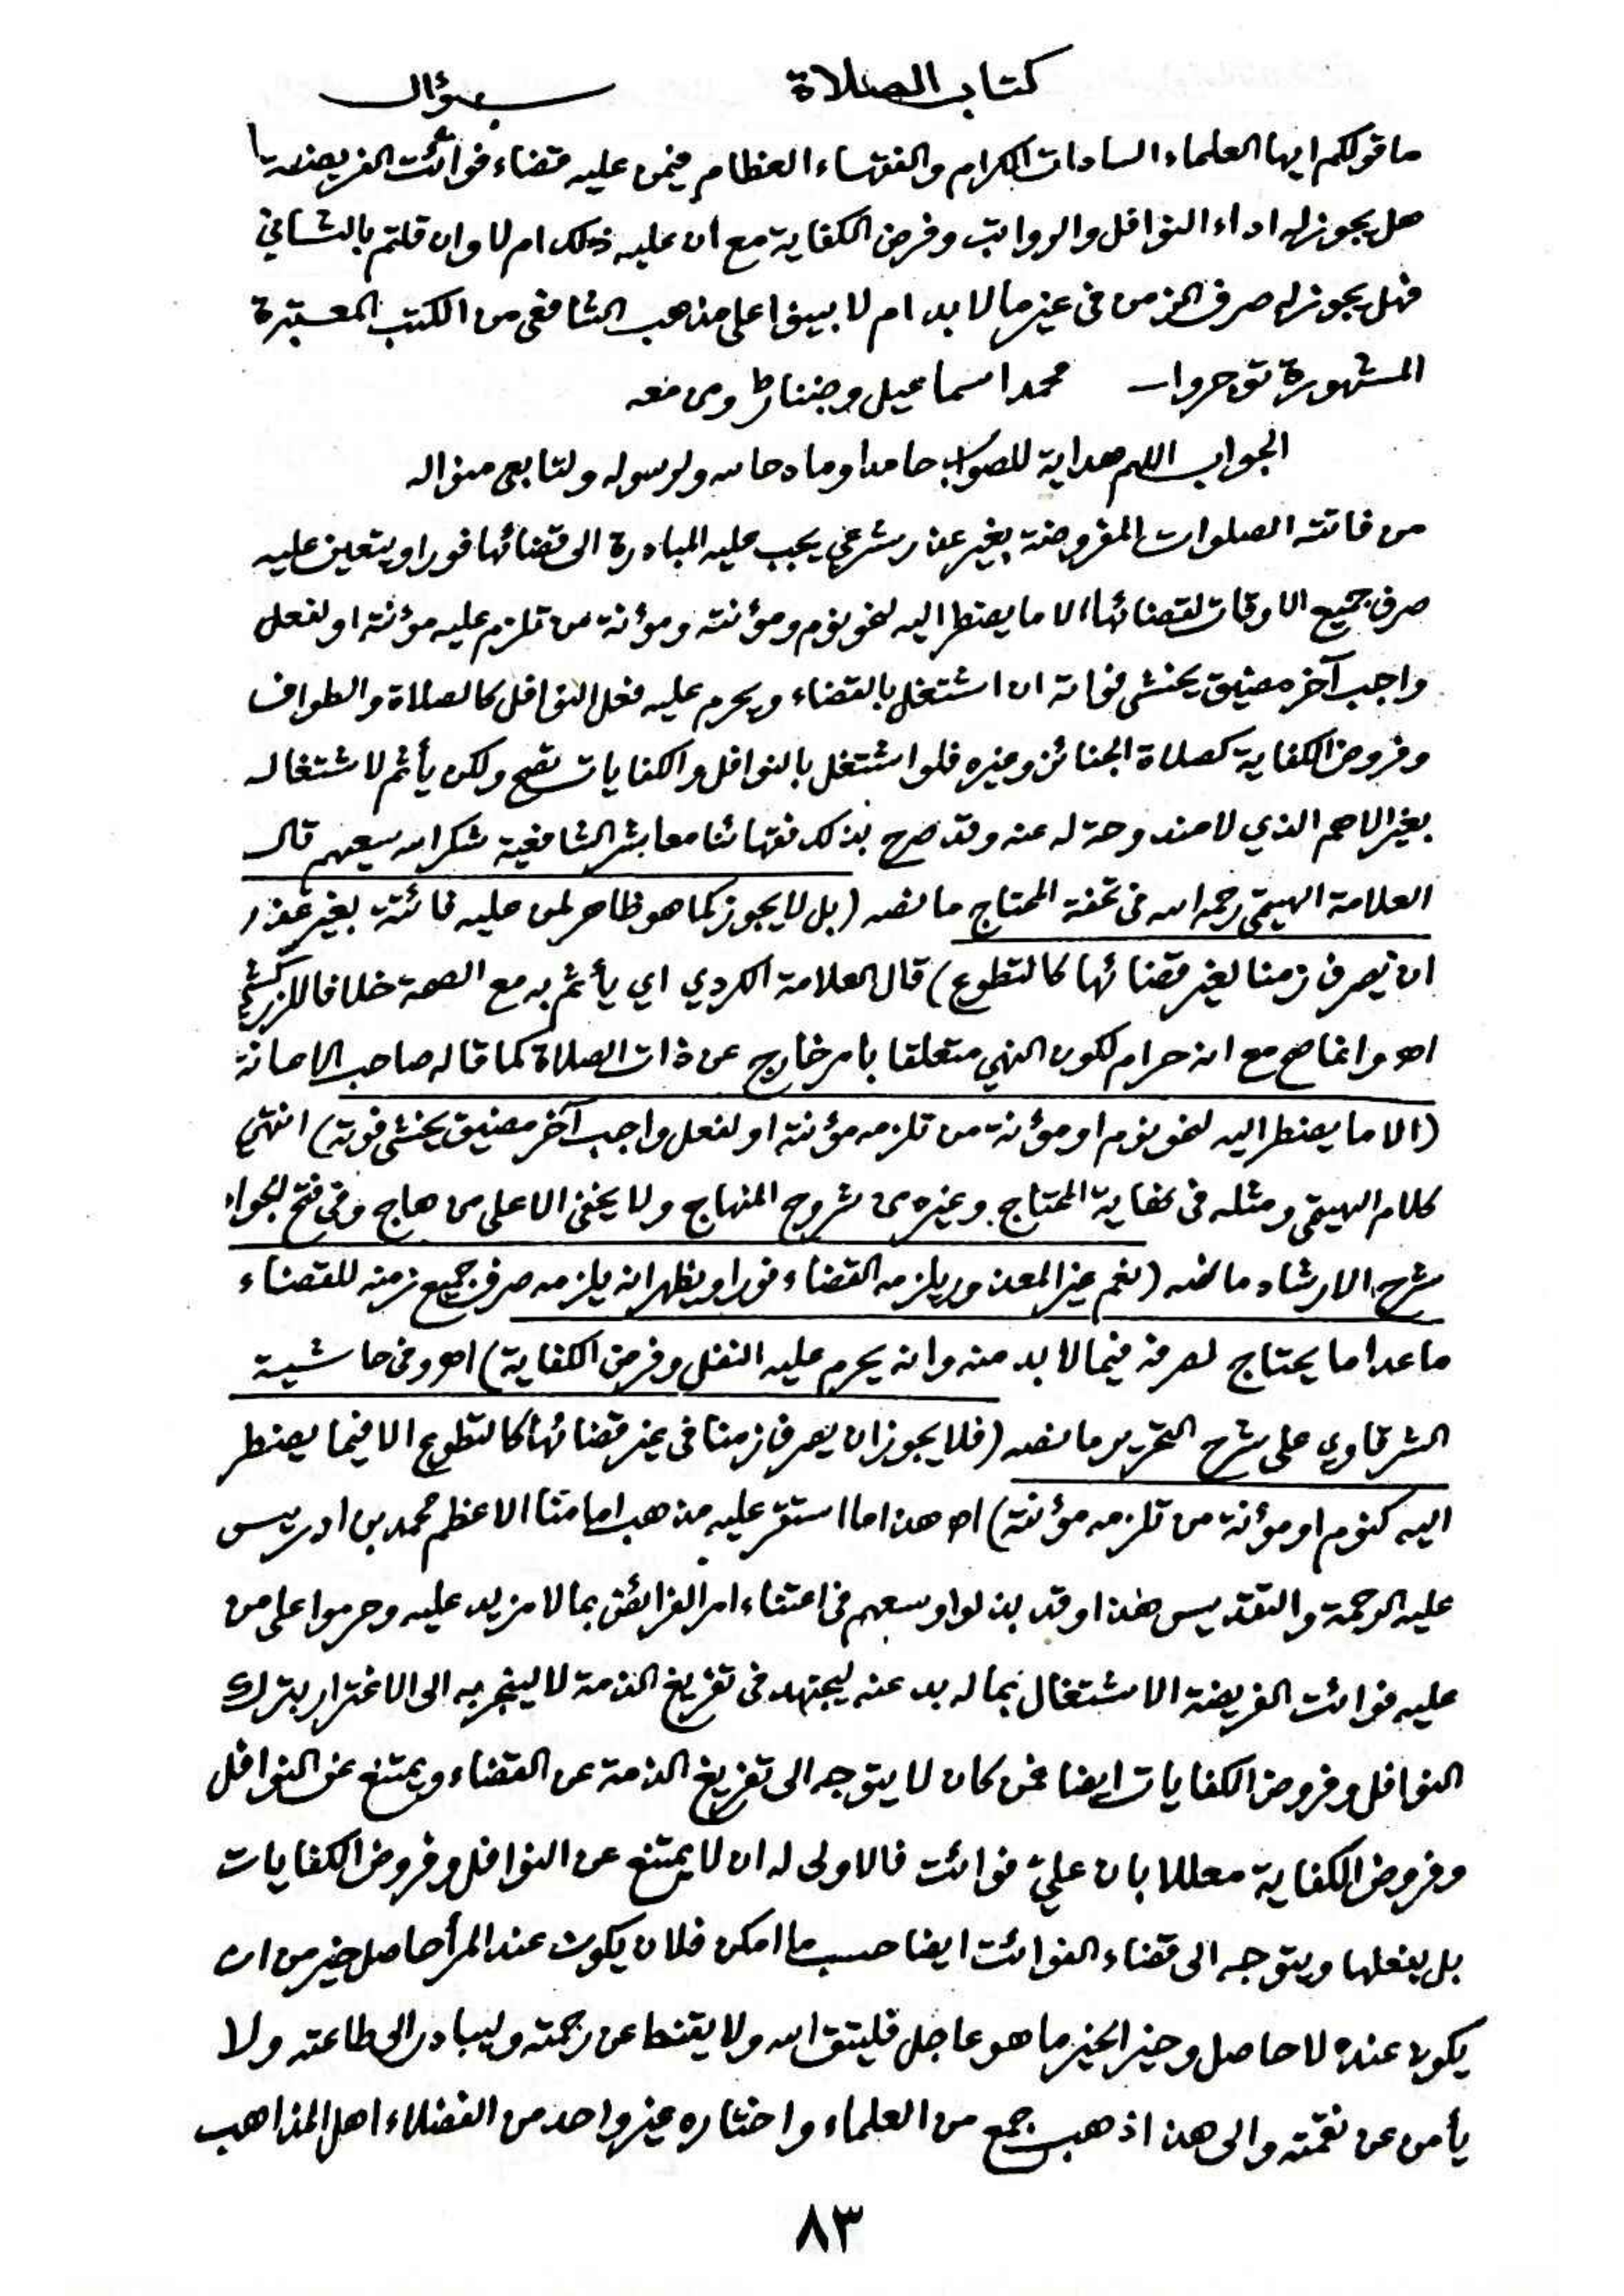 كتاب الصلاة سؤال
ما قولكم ايها العلماء السادات الكرام والفقهاء العظام فيمن عليه قضاء فوائت الفريضة
هل يجوز له اداء النوافل والرواتب وفرض الكفاية مع ان عليه ذلك ام لا وان قلتم بالثاني
فهل يجوز له صرف الزمن في غير ما لا بد ام لا بينوا على مذهب الشافعي من الكتب المعتبرة
المشهورة توجروا محمد اسماعيل ومن معه
الجواب اللهم هداية للصواب حامدا ومادحا له ولرسوله ولتابعي منواله
من فاتته الصلوات المفروضة بغير عذر شرعي يجب عليه المبادرة الى قضائها فورا ويتعين عليه
صرف جميع الاوقات لقضائها الا ما يضطر اليه لنحو نوم ومؤنته ومؤنة من تلزم عليه مؤنته او لفعل
واجب آخر مضيق يخشى فواته ان اشتغل بالقضاء ويحرم عليه فعل النوافل كالصلاة والطواف
وفروض الكفاية كصلاة الجنائز وغيره فلو اشتغل بالنوافل والكفايات تصح ولكن يأثم لاشتغاله
بغير الاهم الذي لا مندوحة له عنه وقد صرح بذلك فقهائنا معاشر الشافعية شكر الله سعيهم قال
العلامة الهيتمي رحمه الله في تحفة المحتاج ما نصه (بل لا يجوز كما هو ظاهر لمن عليه فائتة بغير عذر
ان يصرف زمنا لغير قضائها كالتطوع) قال العلامة الكردي اي يأثم به مع الصحة خلافا للزركشي
اهـ وانما صح مع انه حرام لكون النهي متعلقا بامر خارج عن ذات الصلاة كما قاله صاحب الاعانة
(الا ما يضطر اليه لنحو نوم او مؤنة من تلزمه مؤنته او لفعل واجب آخر مضيق يخشى فوته) انتهى
كلام الهيتمي ومثله في نهاية المحتاج وغيره من شروح المنهاج ولا يخفى الا على من هاج وفي فتح الجواد
شرح الارشاد ما نصه (نعم غير المعذور يلزمه القضاء فورا ويظهر انه يلزمه صرف جميع زمنه للقضاء
ما عدا ما يحتاج لصرفه فيما لا بد منه وانه يحرم عليه النفل وفرض الكفاية) اهـ وفي حاشية
الشرقاوي على شرح التحرير ما نصه (فلا يجوز ان يصرف زمنا في غير قضائها كالتطوع الا فيما يضطر
اليه كنوم او مؤنة من تلزمه مؤنته) اهـ هذا ما استقر عليه مذهب امامنا الاعظم محمد بن ادريس
عليه الرحمة والتقديس هذا وقد بذلوا وسعهم في اعتناء امر الفرائض بما لا مزيد عليه وحرموا على من
عليه فوائت الفريضة الاشتغال بما له بد عنه ليجتهد في تفريغ الذمة لا لينجر به الى الاغترار بترك
النوافل وفروض الكفايات ايضا فمن كان لا يتوجه الى تفريغ الذمة عن القضاء ويمتنع عن النوافل
وفروض الكفاية معللا بان عليّ فوائت فالاولى له ان لا يمتنع عن النوافل وفروض الكفايات
بل يفعلها ويتوجه الى قضاء الفوائت ايضا حسب ما امكن فلان يكون عند المرأ حاصل خير من ان
يكون عنده لا حاصل وخير الخير ما هو عاجل فليتق الله ولا يقنط عن رحمته وليبادر الى طاعته ولا
يأمن عن نقمته والى هذا ذهب جمع من العلماء واختاره غير واحد من الفضلاء اهل المذاهب
٨٣